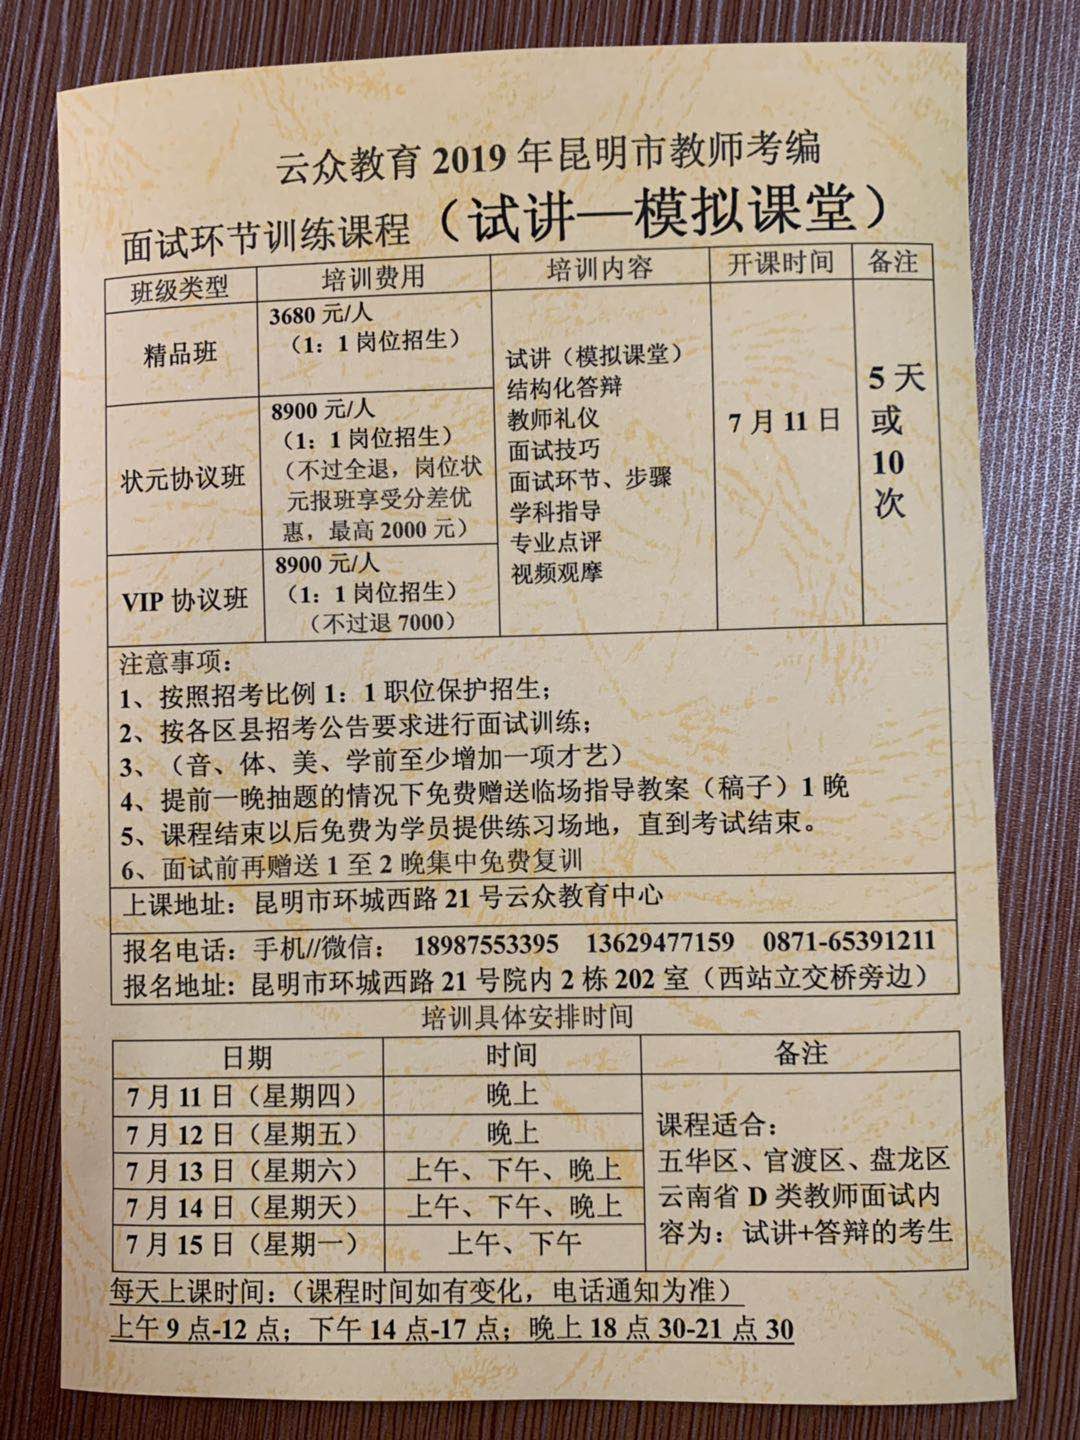 云众教育 2019 年昆明市教师考编
面试环节训练课程（试讲—模拟课堂）
班级类型 培训费用 培训内容 开课时间 备注
精品班
3680 元/人
（1：1 岗位招生）
状元协议班
8900 元/人
（1：1 岗位招生）
（不过全退，岗位状
元报班享受分差优
惠，最高 2000 元）
VIP 协议班
8900 元/人
（1：1 岗位招生）
（不过退 7000）
试讲（模拟课堂）
结构化答辩
教师礼仪
面试技巧
面试环节、步骤
学科指导
专业点评
视频观摩
7 月 11 日
5 天
或
10
次
注意事项：
1、按照招考比例 1：1 职位保护招生；
2、按各区县招考公告要求进行面试训练；
3、（音、体、美、学前至少增加一项才艺）
4、提前一晚抽题的情况下免费赠送临场指导教案（稿子）1 晚
5、课程结束以后免费为学员提供练习场地，直到考试结束。
6、面试前再赠送 1 至 2 晚集中免费复训
上课地址：昆明市环城西路 21 号云众教育中心
报名电话：手机//微信： 18987553395 13629477159 0871-65391211
报名地址：昆明市环城西路 21 号院内 2 栋 202 室（西站立交桥旁边）
培训具体安排时间
日期 时间 备注
7 月 11 日（星期四） 晚上
7 月 12 日（星期五） 晚上
7 月 13 日（星期六） 上午、下午、晚上
7 月 14 日（星期天） 上午、下午、晚上
7 月 15 日（星期一） 上午、下午
课程适合：
五华区、官渡区、盘龙区
云南省 D 类教师面试内
容为：试讲+答辩的考生
每天上课时间：（课程时间如有变化，电话通知为准）
上午 9 点-12 点；下午 14 点-17 点；晚上 18 点 30-21 点 30